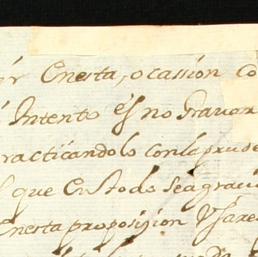 Enesta, ocassion co
Intento es no Gravar
racticandolo con la prude
que en todo sea graci
Enesta proposizion Usare